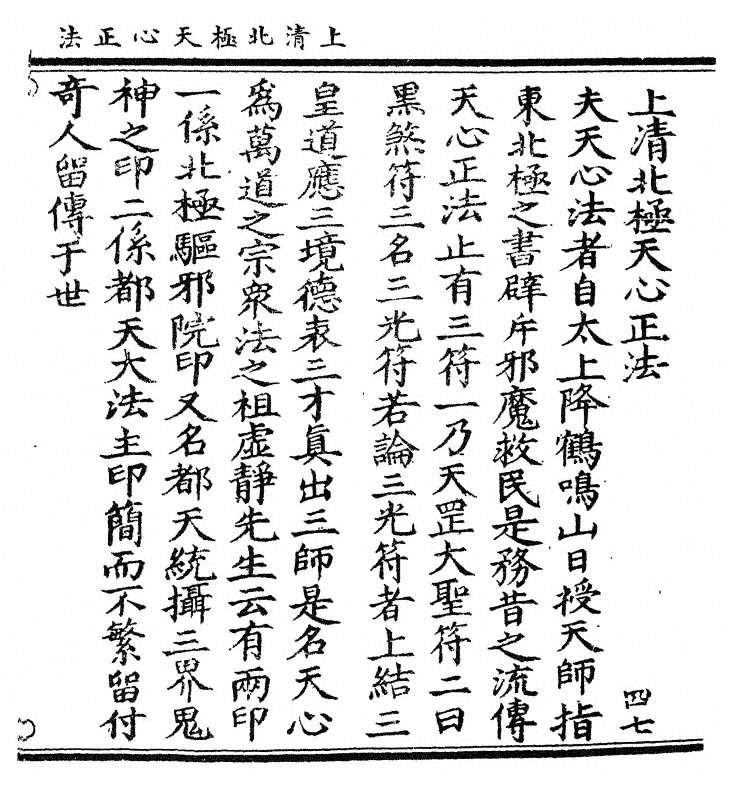 上清北極天心正法
上清北極天心正法
四七
夫天心法者自太上降鶴鳴山日授天師指
東北極之書辟斥邪魔救民是務昔之流傳
天心正法止有三符一乃天罡大聖符二曰
黑煞符三名三光符若論三光符者上結三
皇道應三境德表三才眞出三師是名天心
爲萬道之宗衆法之祖虛靜先生云有兩印
一係北極驅邪院印又名都天統攝三界鬼
神之印二係都天大法主印簡而不繁留付
奇人留傳于世